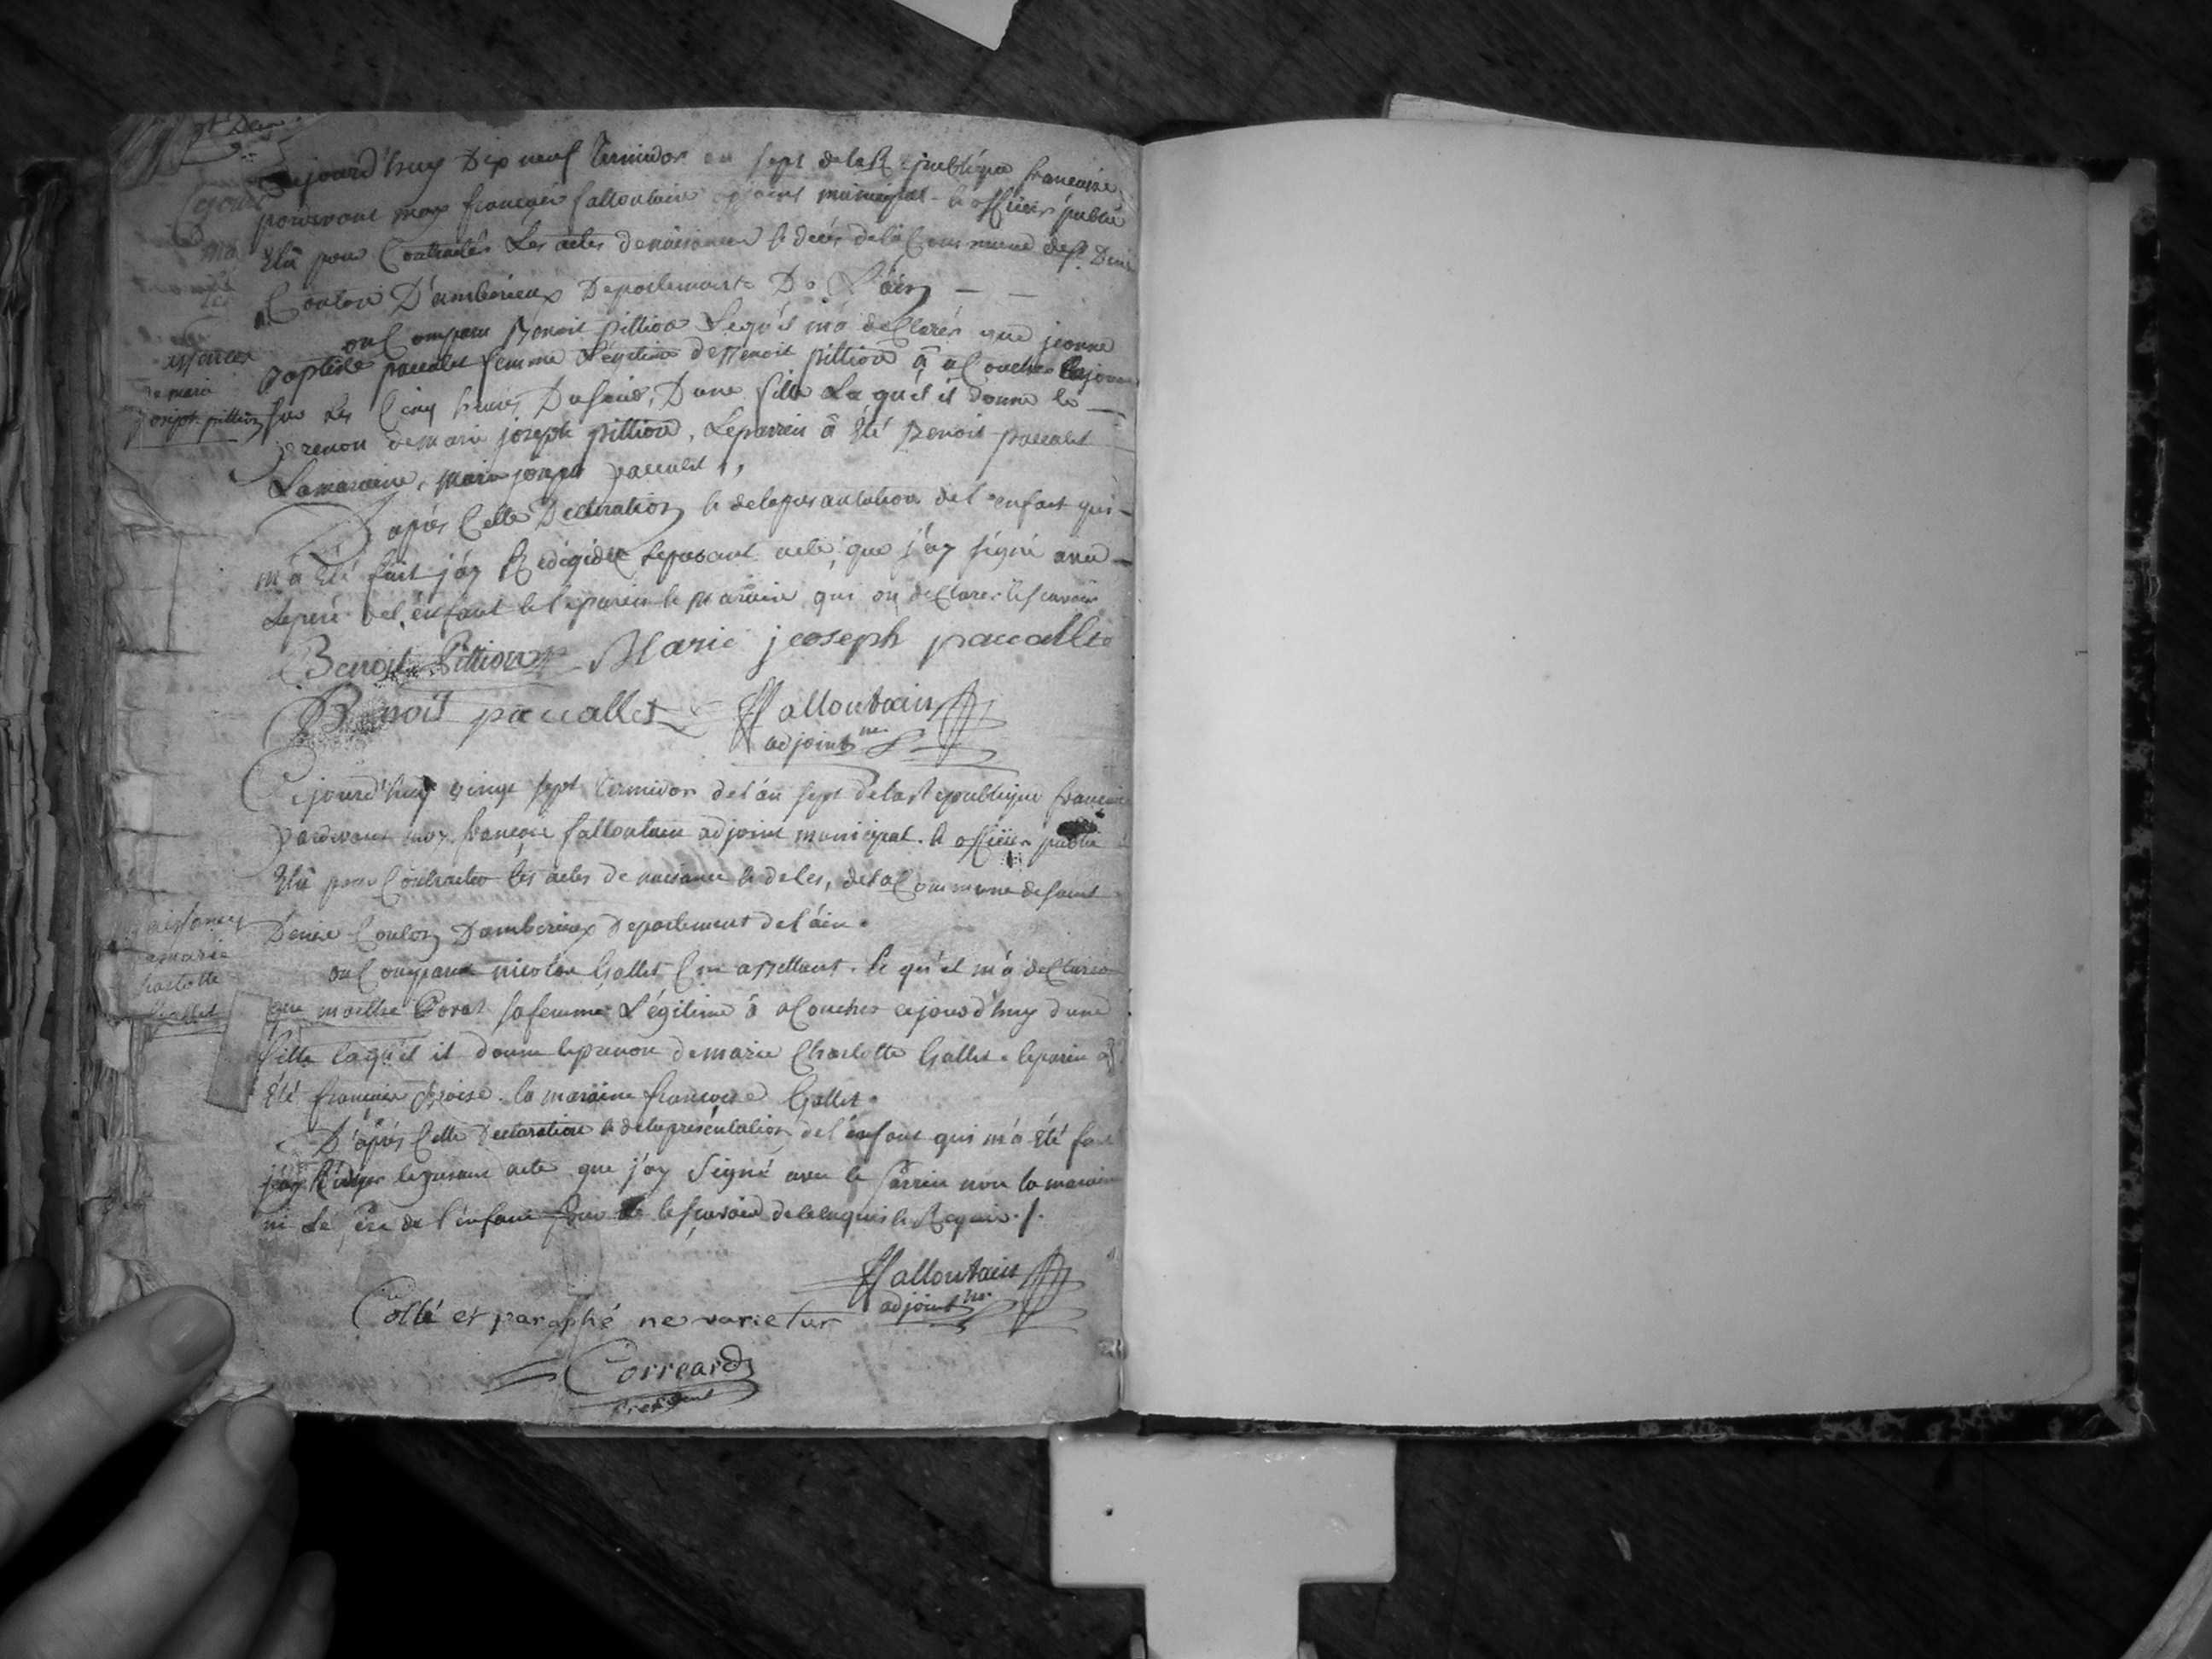 Cejourd'huy Dix neuf termidor an sept de la Republique francaise
pardevant moy francois fallontain adjoint municipal & officier public
Elu pour Contracter Les actes de naisance & decés de la Commune de St Denis
Canton D'amberieux Departement De L'ain
on Comparu Benoit pittion Lequ'el m'a declarer que jeanne
Baptiste paccalet femme Légitime de Benoit pittion â acoucher cejour
sur Les Cinq heures Du soir, D'une fille La qu'el il donne le
prenon de marie joseph pittion, Leparrein â Eté Benoit paccalet
La maraine, marie joseph paccalet,,
D'après Cette Declaration & de la presantation de l'enfant qui
m'a Eté fait j'ay Redigider le presant acte, que j'ay signé avec
le pere de l'enfant & le parein & maraine qui on declarer le scavoir
naissance
de marie
joseph pittion
Benoit Pittion Marie jeoseph paccallet
Benoit paccallet Ffallontain
adjoint m.
Cejourd'huy vingt sept termidor de l'an sept de la Republique francaise
pardevant moy francois fallontain adjoint municipal & officier public
Elu pour Contracter les actes de naisance & deces, de la Commune de saint
Denis Canton D'amberieux Departement de l'ain.
on Comparu nicolas Gallet le qu'el m'a declarer
que sa femme Légitime â acoucher cejourd'huy d'une
fille laqu'el il donne le prenon de marie Charlotte Gallet. le parein a
Eté francois la maraine francoise Gallet.
D'après Cette Declaration & de la présentation de l'enfant qui m'a Eté fait
j'ay Rédiger le presant acte que j'ay Signé avec le Parrein non la maraine
ni Le pere de l'enfant pour ne le scavoir de ce enquis & Requis ./.
naissance
de marie
charlotte
Gallet
Ffallontain
adjoint m.
Cotté et paraphé ne varietur
Correard
President